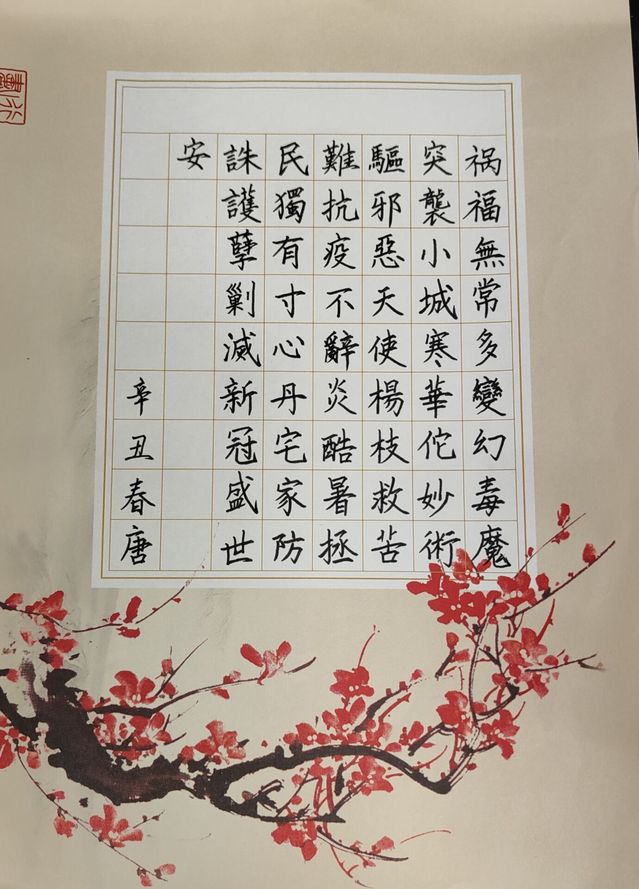 祸福無常多變幻毒魔
突襲小城寒華佗妙術
驅邪惡天使楊枝救苦
難抗疫不辭炎酷暑拯
民獨有寸心丹宅家防
誅護孽剿滅新冠盛世
安
辛丑春唐